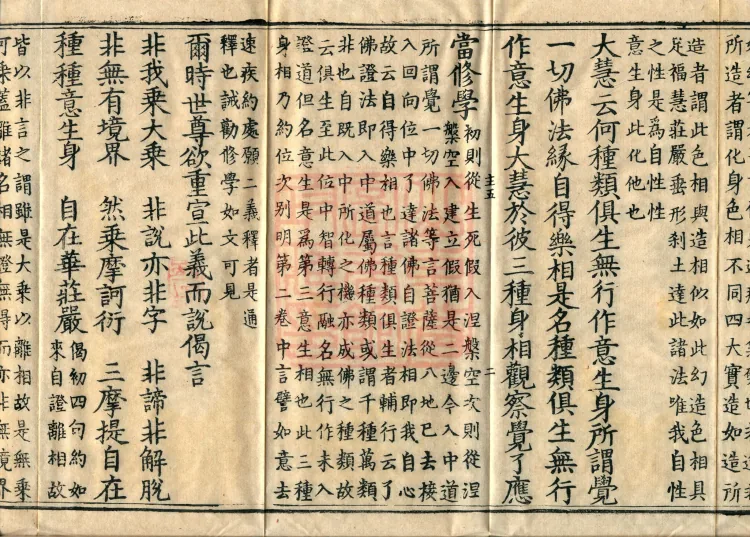 所造者謂化身色相不同四大實造如造所
造者謂此色相與造相似如此幻造色相具
足福慧莊嚴垂形刹土達此諸法唯我自性
之性是為自性性
意生身此化他也
大慧云何種類俱生無行作意生身所謂覺
一切佛法緣自得樂相是名種類俱生無行
作意生身大慧於彼三種身相觀察覺了應
二
當修學
初則從生死假入涅槃空次則從涅
槃空入建立假猶是二邊今入中道
所謂覺一切佛法等言菩薩從八地已去接
入回向位中了達諸佛自證法相即我自心
故云自得樂相也言種類俱生者輔行云了
佛證法即入中道屬佛種類或謂千種萬類
非也自既入中所化之機亦成佛之種類故
云俱生至此位中智轉行融名無行作未入
證道但名意生是為第三意生相也此三種
身相乃約位次別明第二卷中言譬如意去
速疾約處願二義釋者是通
釋也誠勸修學如文可見
爾時世尊欲重宣此義而說偈言
非我乘大乘 非說亦非字 非諦非解脫
非無有境界 然乘摩訶衍 三摩提自在
種種意生身 自在華莊嚴
偈初四句約如
來自證離相故
皆以非言之謂雖是大乘以離相故是無乘
何乘蓋離諸名相無證無得而亦非無境界